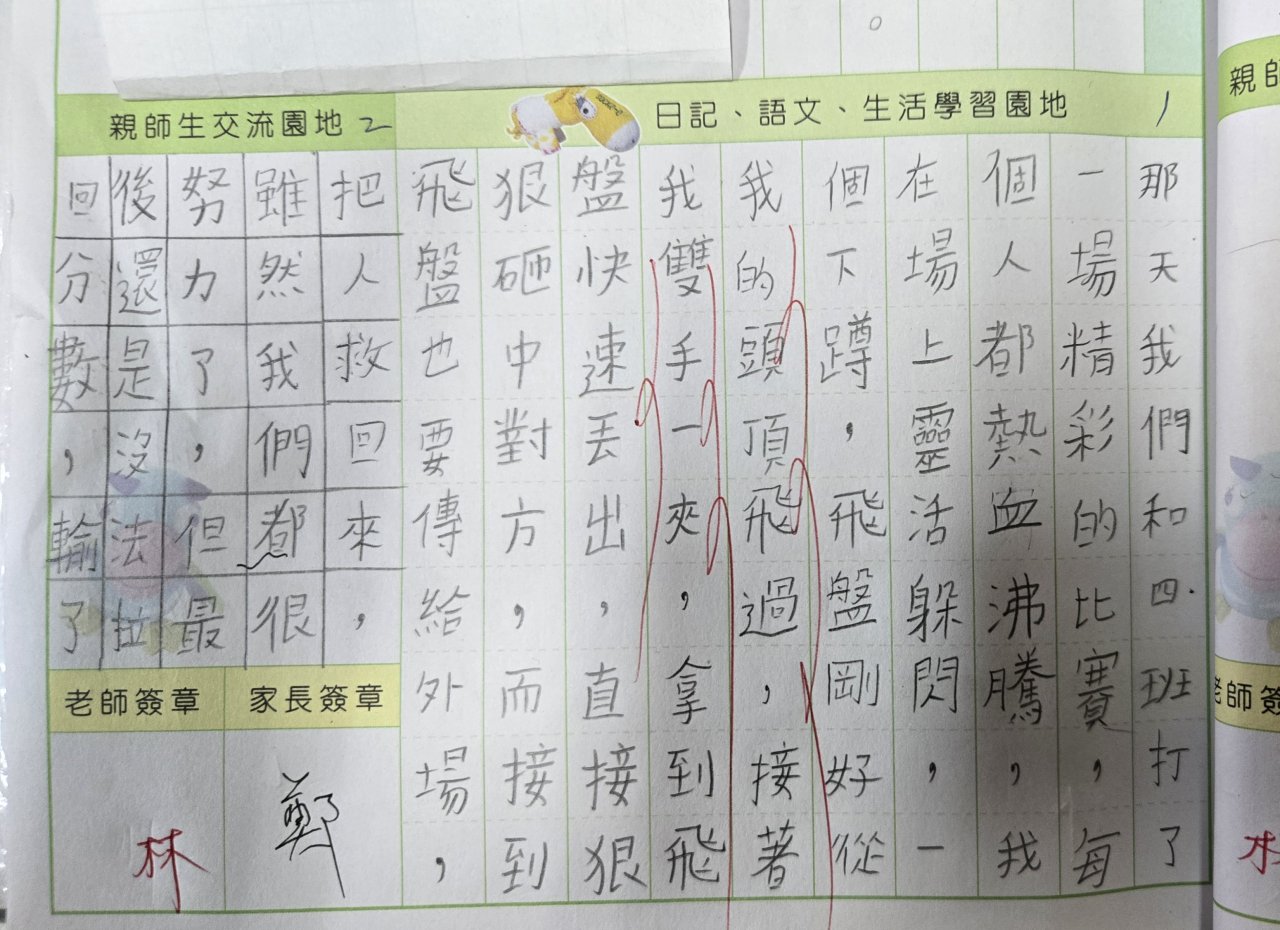 親師生交流園地 2
日記、語文、生活學習園地
1
那天我們和四班打了
一場精彩的比賽,每
個人都熱血沸騰,我
在場上靈活躲閃,一
個下蹲,飛盤剛好從
我的頭頂飛過,接著
我雙手一夾,拿到飛
盤快速丟出,直接狠
狠砸中對方,而接到
飛盤也要傳給外場,
把人救回來,
雖然我們都很
努力了,但最
後還是沒法拉
回分數,輸了
老師簽章
家長簽章
林
鄭
親師
老師簽